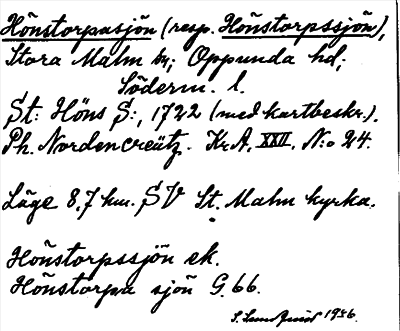 Hönstorpasjön (resp. Hönstorpssjön),
Stora Malm sn; Oppunda hd;
Söderm. l.
St: Höns S:, 1722 (med kartbeskr.).
Ph. Nordencreütz. Kr.A. XXII. N:o 24.
Läge 8,7 km. SV St. Malm kyrka.
Hönstorpssjön ek.
Hönstorpa sjön G. 66.
S. Lundquist 1956.